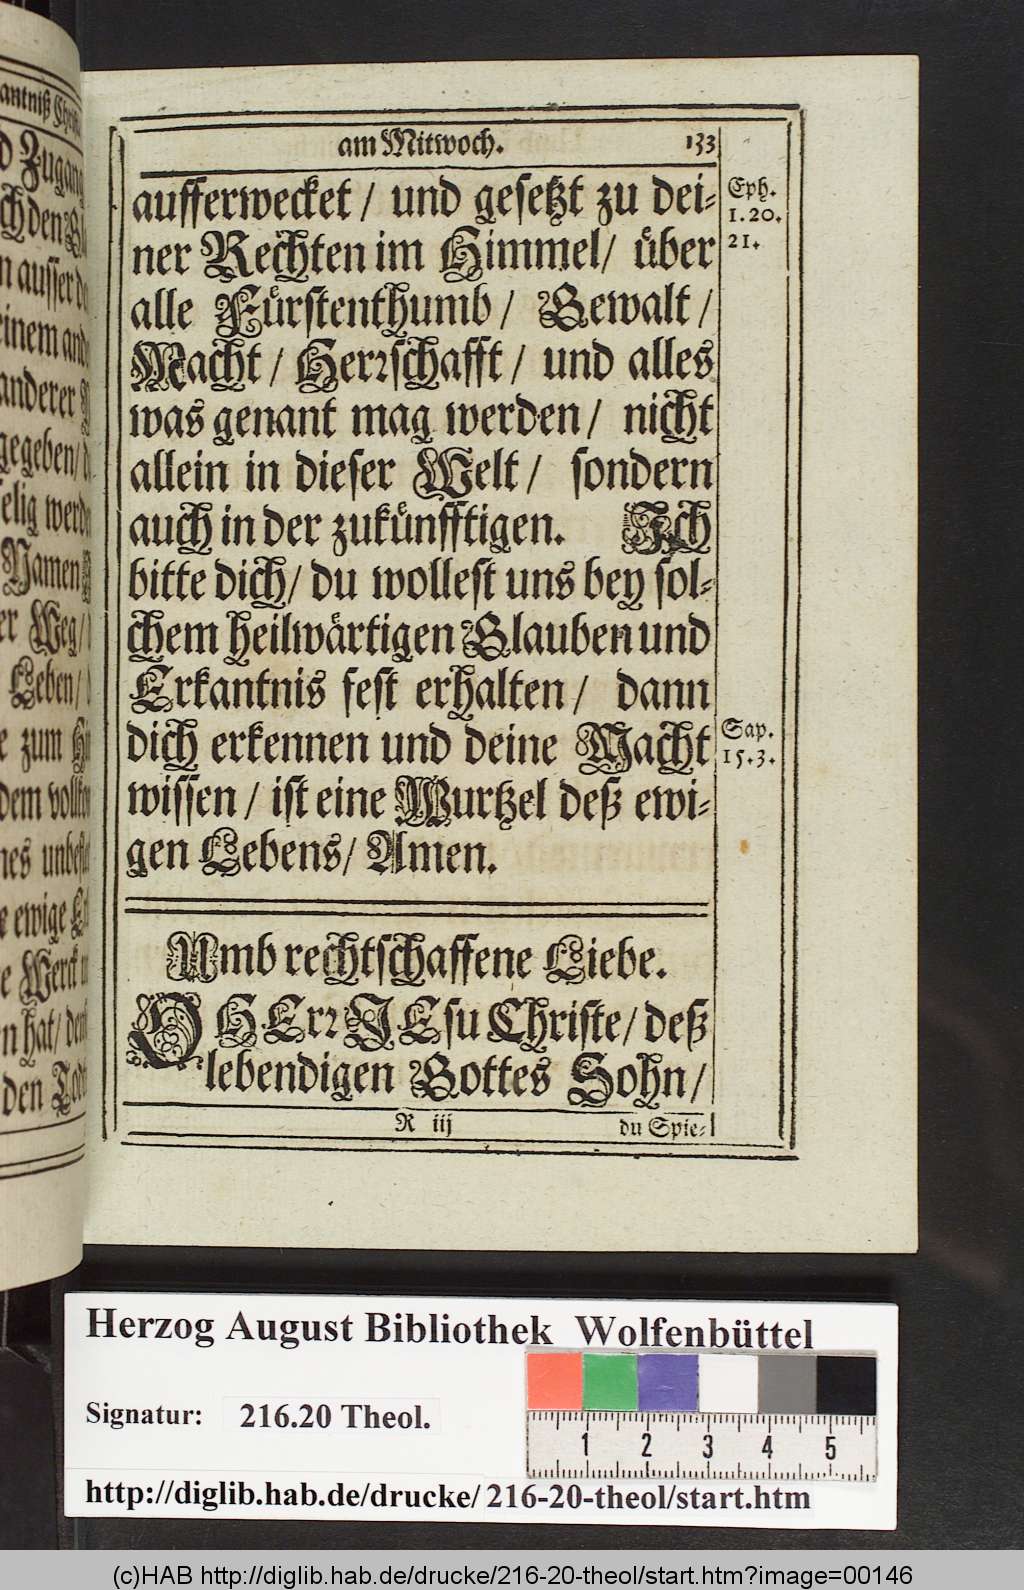 am Mitwoch. 133
aufferwecket / und gesetzt zu dei-
ner Rechten im Himmel/ über
alle Fürstenthumb / Gewalt /
Macht / Herrschafft / und alles
was genant mag werden / nicht
allein in dieser Welt / sondern
auch in der zukünfftigen. Ich
bitte dich / du wollest uns bey sol-
chem heilwärtigen Glauben und
Erkantnis fest erhalten / dann
dich erkennen und deine Macht
wissen / ist eine Wurtzel deß ewi-
gen Lebens / Amen.
Eph.
1.20.
21.
Sap.
15.3.
Umb rechtschaffene Liebe.
O HErr JEsu Christe / deß
lebendigen Gottes Sohn /
R iij du Spie-
antniß Chri
Zugang
ch den
ausser de
einem and
anderer
gegeben/
elig werd
Namen
er Weg/
Leben/
e zum
dem vollko
nes unbe
e ewige
e Werck
n hat/
den
Herzog August Bibliothek Wolfenbüttel
Signatur: 216.20 Theol.
1 2 3 4 5
http://diglib.hab.de/drucke/216-20-theol/start.htm
(c)HAB http://diglib.hab.de/drucke/216-20-theol/start.htm?image=00146